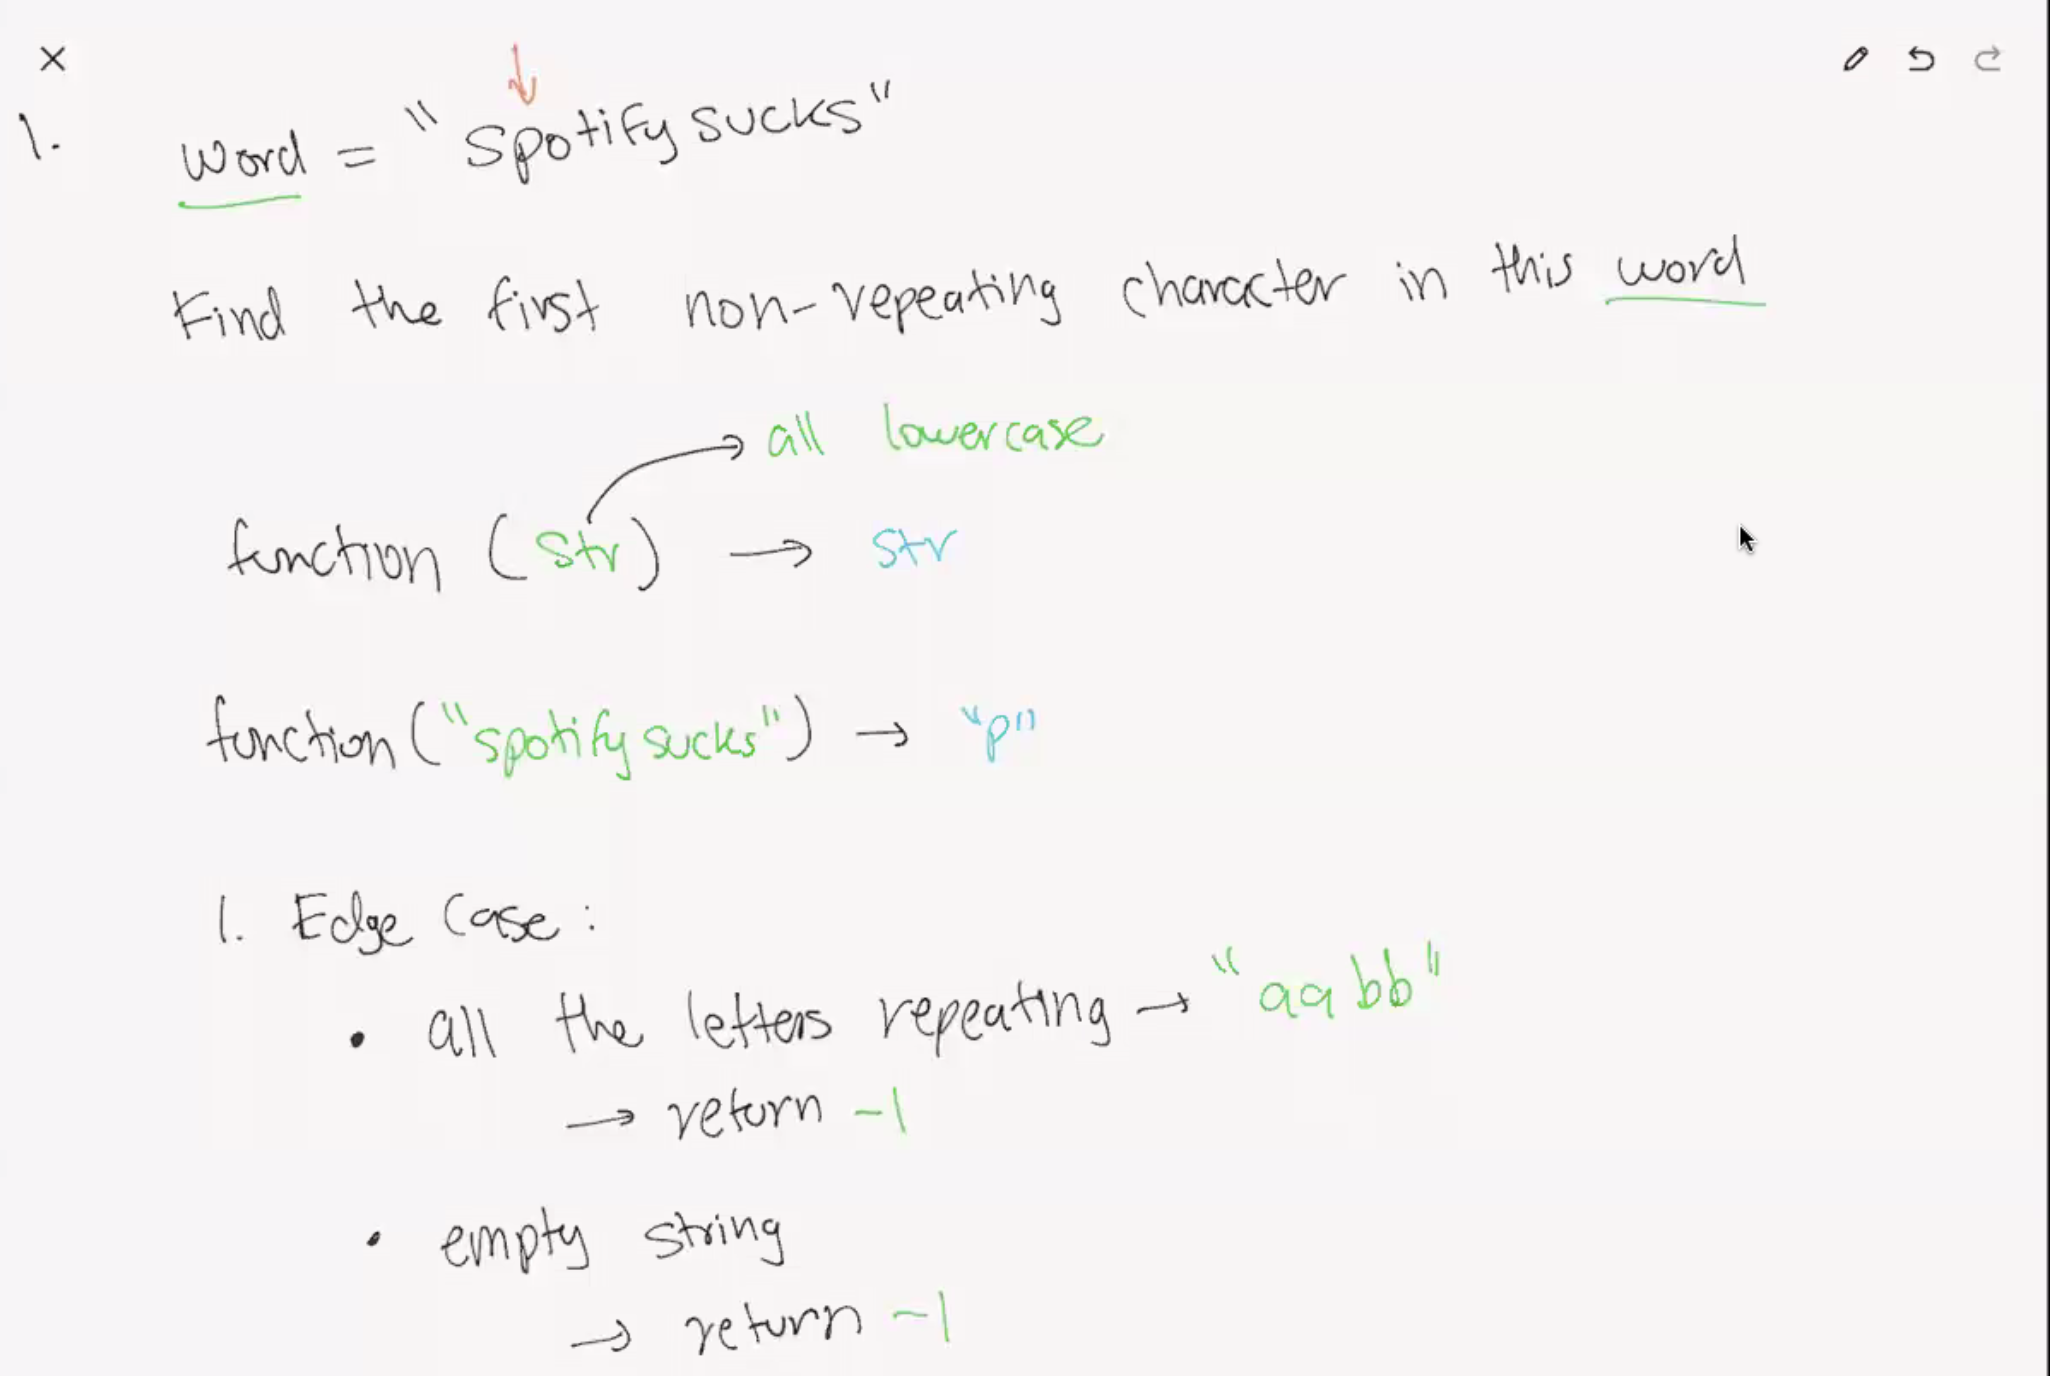 1. word = "spotifysucks"
Find the first non-repeating character in this word
all lowercase
function (str) → str
function("spotifysucks") → "p"
1. Edge Case:
• all the letters repeating → "aabb"
→ return -1
• empty string
→ return -1